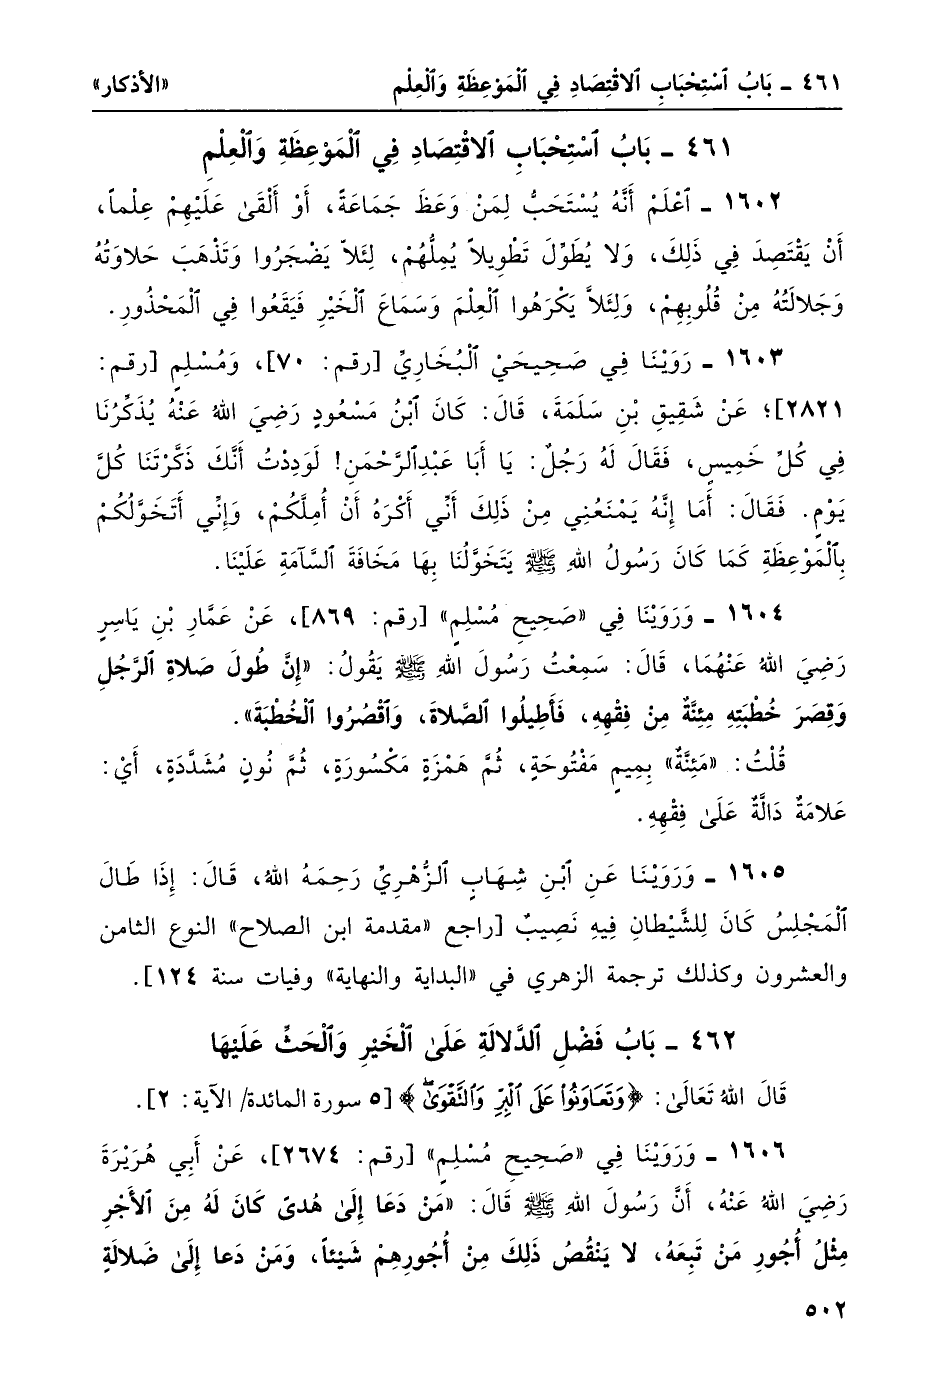 ٤٦١ ـ بَابُ ٱسْتِحْبَابِ ٱلاقْتِصَادِ فِي ٱلْمَوْعِظَةِ وَٱلْعِلْمِ «الأذكار»
٤٦١ ـ بَابُ ٱسْتِحْبَابِ ٱلاقْتِصَادِ فِي ٱلْمَوْعِظَةِ وَٱلْعِلْمِ
١٦٠٢ ـ ٱعْلَمْ أَنَّهُ يُسْتَحَبُّ لِمَنْ وَعَظَ جَمَاعَةً، أَوْ أَلْقَىٰ عَلَيْهِمْ عِلْماً،
أَنْ يَقْتَصِدَ فِي ذَلِكَ، وَلا يُطَوِّلَ تَطْوِيلاً يُمِلُّهُمْ، لِئَلاَّ يَضْجَرُوا وَتَذْهَبَ حَلاوَتُهُ
وَجَلالَتُهُ مِنْ قُلُوبِهِمْ، وَلِئَلاَّ يَكْرَهُوا ٱلْعِلْمَ وَسَمَاعَ ٱلْخَيْرِ فَيَقَعُوا فِي ٱلْمَحْذُورِ.
١٦٠٣ ـ رَوَيْنَا فِي صَحِيحَيْ ٱلْبُخَارِيِّ [رقم: ٧٠]، وَمُسْلِمٍ [رقم:
٢٨٢١]؛ عَنْ شَقِيقِ بْنِ سَلَمَةَ، قَالَ: كَانَ ٱبْنُ مَسْعُودٍ رَضِيَ اللهُ عَنْهُ يُذَكِّرُنَا
فِي كُلِّ خَمِيسٍ، فَقَالَ لَهُ رَجُلٌ: يَا أَبَا عَبْدِٱلرَّحْمَنِ! لَوَدِدْتُ أَنَّكَ ذَكَّرْتَنَا كُلَّ
يَوْمٍ. فَقَالَ: أَمَا إِنَّهُ يَمْنَعُنِي مِنْ ذَلِكَ أَنِّي أَكْرَهُ أَنْ أُمِلَّكُمْ، وَإِنِّي أَتَخَوَّلُكُمْ
بِٱلْمَوْعِظَةِ كَمَا كَانَ رَسُولُ اللهِ ﷺ يَتَخَوَّلُنَا بِهَا مَخَافَةَ ٱلسَّآمَةِ عَلَيْنَا.
١٦٠٤ ـ وَرَوَيْنَا فِي «صَحِيحِ مُسْلِمٍ» [رقم: ٨٦٩]، عَنْ عَمَّارِ بْنِ يَاسِرٍ
رَضِيَ اللهُ عَنْهُمَا، قَالَ: سَمِعْتُ رَسُولَ اللهِ ﷺ يَقُولُ: «إِنَّ طُولَ صَلاةِ ٱلرَّجُلِ
وَقِصَرَ خُطْبَتِهِ مِئنَّةٌ مِنْ فِقْهِهِ، فَأَطِيلُوا ٱلصَّلاةَ، وَٱقْصُرُوا ٱلْخُطْبَةَ».
قُلْتُ: «مَئِنَّةٌ» بِمِيمٍ مَفْتُوحَةٍ، ثُمَّ هَمْزَةٍ مَكْسُورَةٍ، ثُمَّ نُونٍ مُشَدَّدَةٍ، أَيْ:
عَلامَةٌ دَالَّةٌ عَلَىٰ فِقْهِهِ.
١٦٠٥ ـ وَرَوَيْنَا عَنِ ٱبْنِ شِهَابٍ ٱلزُّهْرِيِّ رَحِمَهُ اللهُ، قَالَ: إِذَا طَالَ
ٱلْمَجْلِسُ كَانَ لِلشَّيْطَانِ فِيهِ نَصِيبٌ [راجع «مقدمة ابن الصلاح» النوع الثامن
والعشرون وكذلك ترجمة الزهري في «البداية والنهاية» وفيات سنة ١٢٤].
٤٦٢ ـ بَابُ فَضْلِ ٱلدَّلالَةِ عَلَىٰ ٱلْخَيْرِ وَٱلْحَثِّ عَلَيْهَا
قَالَ اللهُ تَعَالَىٰ: ﴿وَتَعَاوَنُوا۟ عَلَى ٱلْبِرِّ وَٱلتَّقْوَىٰۖ﴾ [٥ سورة المائدة/ الآية: ٢].
١٦٠٦ ـ وَرَوَيْنَا فِي «صَحِيحِ مُسْلِمٍ» [رقم: ٢٦٧٤]، عَنْ أَبِي هُرَيْرَةَ
رَضِيَ اللهُ عَنْهُ، أَنَّ رَسُولَ اللهِ ﷺ قَالَ: «مَنْ دَعَا إِلَىٰ هُدىً كَانَ لَهُ مِنَ ٱلأَجْرِ
مِثْلُ أُجُورِ مَنْ تَبِعَهُ، لا يَنْقُصُ ذَلِكَ مِنْ أُجُورِهِمْ شَيْئاً، وَمَنْ دَعا إِلَىٰ ضَلالَةٍ
٥٠٢